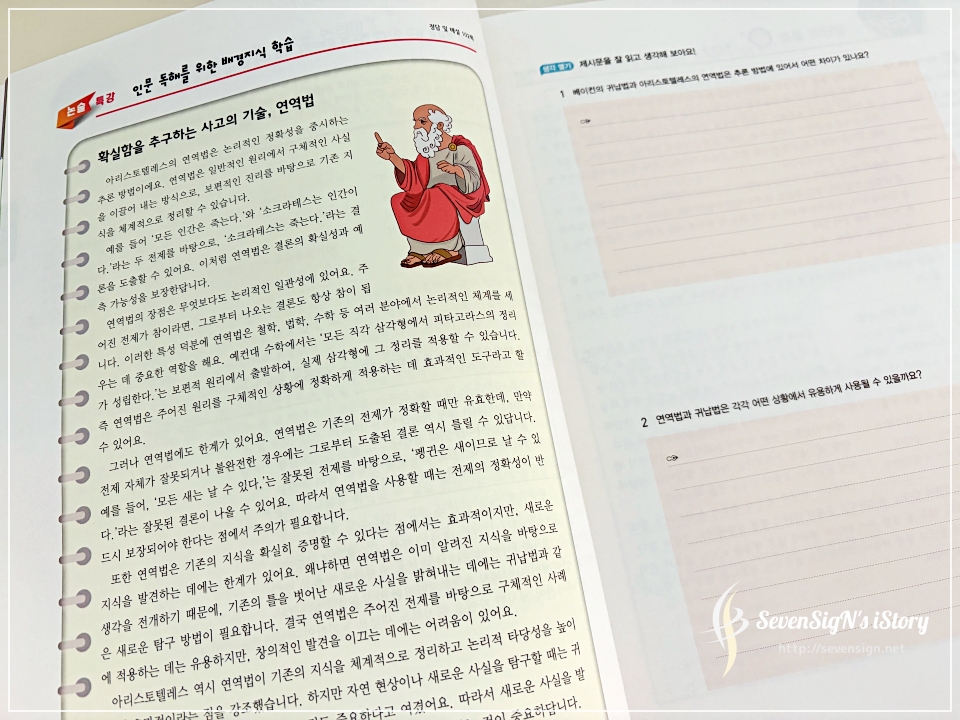 정답 및 해설 102쪽
논술 특강 인문 독해를 위한 배경지식 학습
확실함을 추구하는 사고의 기술, 연역법
아리스토텔레스의 연역법은 논리적인 정확성을 중시하는
추론 방법이에요. 연역법은 일반적인 원리에서 구체적인 사실
을 이끌어 내는 방식으로, 보편적인 진리를 바탕으로 기존 지
식을 체계적으로 정리할 수 있습니다.
예를 들어 '모든 인간은 죽는다.'와 '소크라테스는 인간이
다.'라는 두 전제를 바탕으로, '소크라테스는 죽는다.'라는 결
론을 도출할 수 있어요. 이처럼 연역법은 결론의 확실성과 예
측 가능성을 보장한답니다.
연역법의 장점은 무엇보다도 논리적인 일관성에 있어요. 주
어진 전제가 참이라면, 그로부터 나오는 결론도 항상 참이 됩
니다. 이러한 특성 덕분에 연역법은 철학, 법학, 수학 등 여러 분야에서 논리적인 체계를 세
우는 데 중요한 역할을 해요. 예컨대 수학에서는 '모든 직각 삼각형에서 피타고라스의 정리
가 성립한다.'는 보편적 원리에서 출발하여, 실제 삼각형에 그 정리를 적용할 수 있습니다.
즉 연역법은 주어진 원리를 구체적인 상황에 정확하게 적용하는 데 효과적인 도구라고 할
수 있어요.
그러나 연역법에도 한계가 있어요. 연역법은 기존의 전제가 정확할 때만 유효한데, 만약
전제 자체가 잘못되거나 불완전한 경우에는 그로부터 도출된 결론 역시 틀릴 수 있답니다.
예를 들어, '모든 새는 날 수 있다.'는 잘못된 전제를 바탕으로, '펭귄은 새이므로 날 수 있
다.'라는 잘못된 결론이 나올 수 있어요. 따라서 연역법을 사용할 때는 전제의 정확성이 반
드시 보장되어야 한다는 점에서 주의가 필요합니다.
또한 연역법은 기존의 지식을 확실히 증명할 수 있다는 점에서는 효과적이지만, 새로운
지식을 발견하는 데에는 한계가 있어요. 왜냐하면 연역법은 이미 알려진 지식을 바탕으로
생각을 전개하기 때문에, 기존의 틀을 벗어난 새로운 사실을 밝혀내는 데에는 귀납법과 같
은 새로운 탐구 방법이 필요합니다. 결국 연역법은 주어진 전제를 바탕으로 구체적인 사례
에 적용하는 데는 유용하지만, 창의적인 발견을 이끄는 데에는 어려움이 있어요.
아리스토텔레스 역시 연역법이 기존의 지식을 체계적으로 정리하고 논리적 타당성을 높이
점을 강조했습니다. 하지만 자연 현상이나 새로운 사실을 탐구할 때는 귀
중요하다고 여겼어요. 따라서 새로운 사실을 발
것이 중요하답니다.
생각 열기 제시문을 잘 읽고 생각해 보아요!
1 베이컨의 귀납법과 아리스토텔레스의 연역법은 추론 방법에 있어서 어떤 차이가 있나요?
2 연역법과 귀납법은 각각 어떤 상황에서 유용하게 사용될 수 있을까요?
SevenSigN's iStory
http://sevensign.net